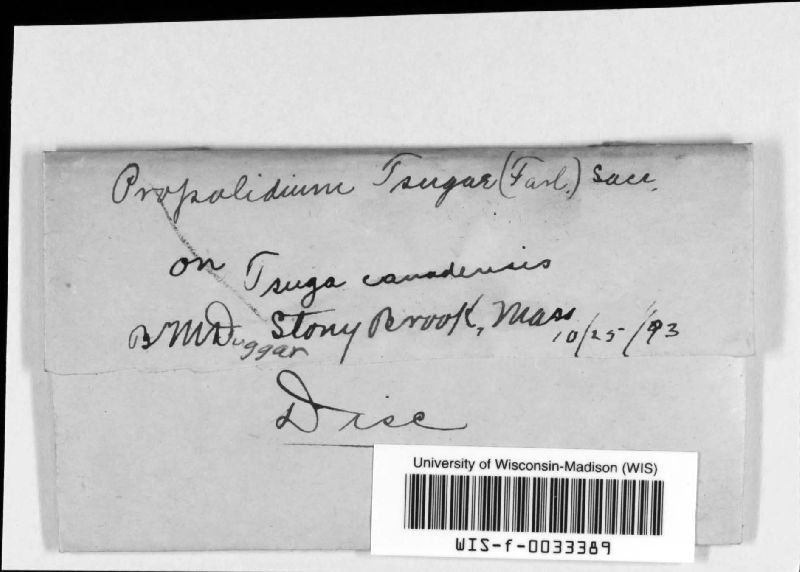 Propolidium Tsugae (Farl.) Sacc.
on Tsuga canadensis
BMDuggar Stony Brook, Mass
10/25/93
Disc
University of Wisconsin-Madison (WIS)
WIS-f-0033389